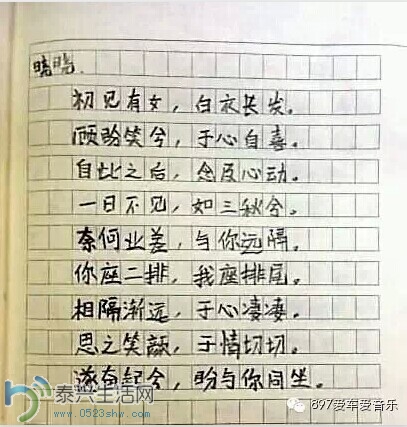 晓晓.
初见有女，白衣长发。
顾盼笑兮，于心自喜。
自此之后，念及心动。
一日不见，如三秋兮。
奈何业差，与你远隔。
你座二排，我座排尾。
相隔渐远，于心凄凄。
思之笑颜，于情切切。
遂奋起兮，盼与你同坐。
泰兴生活网
www.0523shw.com
897爱车爱音乐